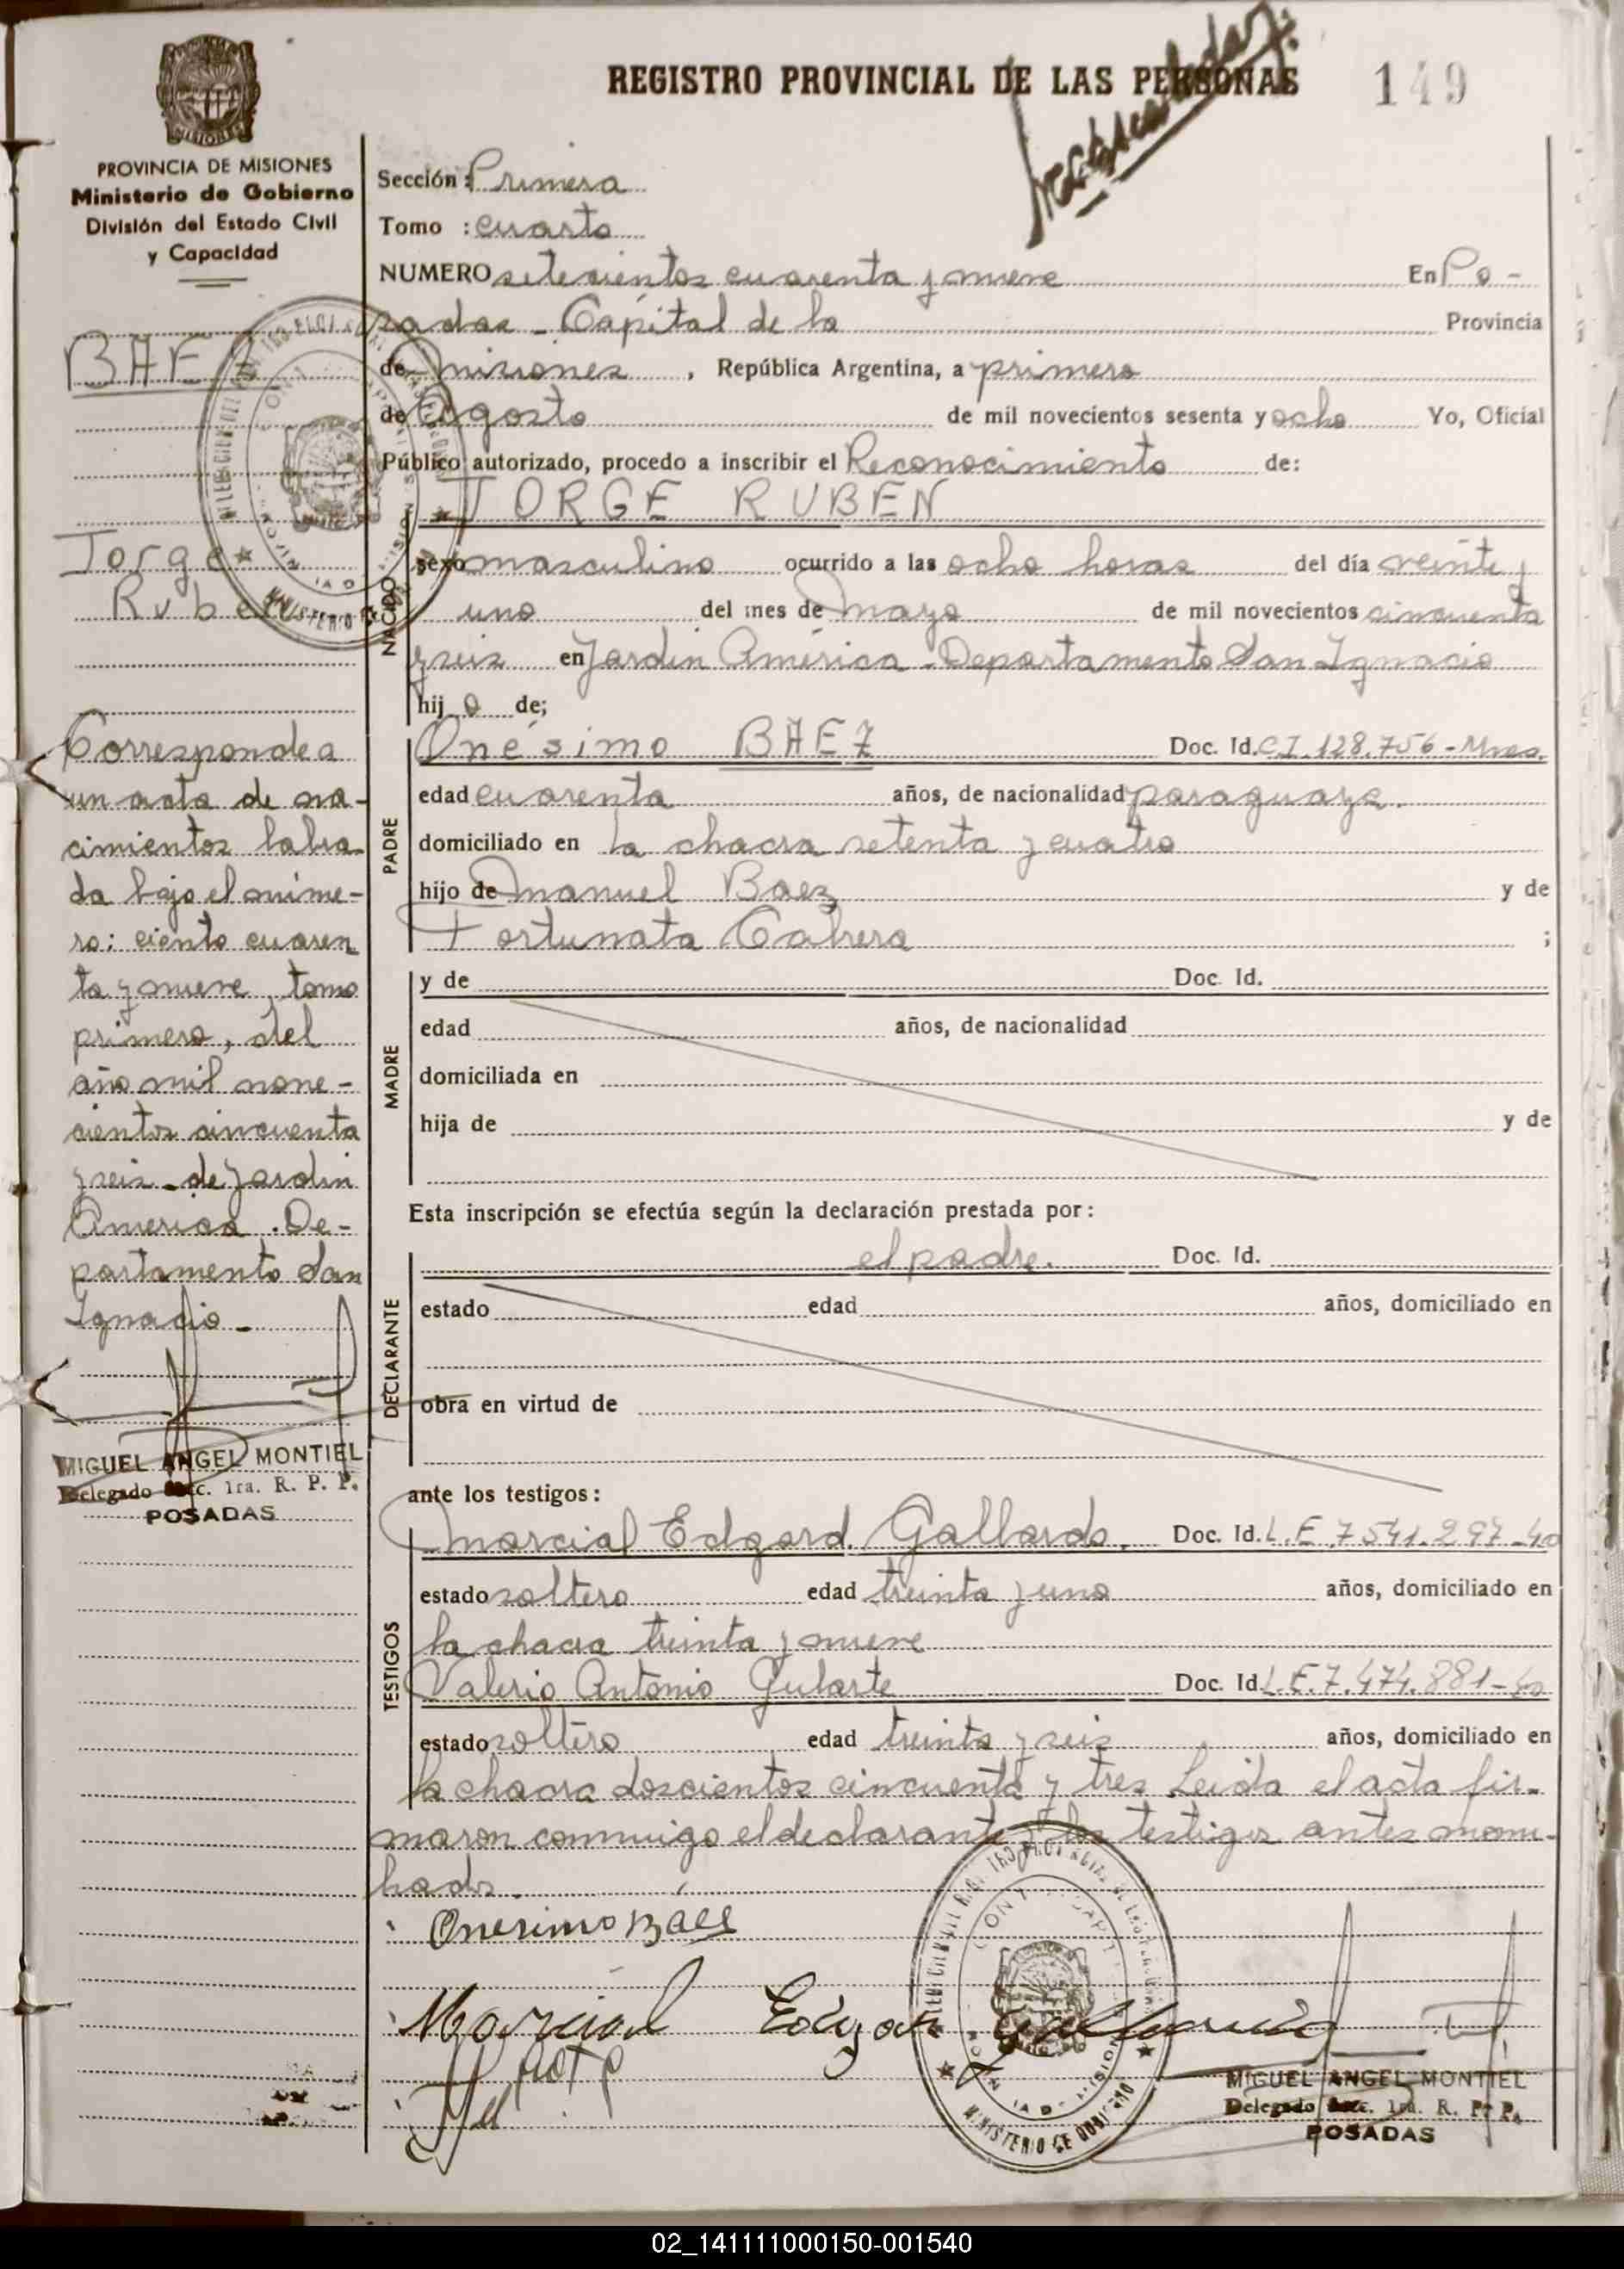 REGISTRO PROVINCIAL DE LAS PERSONAS
149
PROVINCIA DE MISIONES
Ministerio de Gobierno
División del Estado Civil
y Capacidad
BAEZ
Jorge
Ruben
Corresponde a
un acta de na-
cimientos labra-
da bajo el núme-
ro: ciento cuaren
ta y nueve, tomo
primero, del
año mil nove-
cientos cincuenta
y seis - de Jardin
America. De-
partamento San
Ignacio -
MIGUEL ANGEL MONTIEL
Delegado Sec. 1ra. R. P. P.
POSADAS
Sección: Primera
Tomo : cuarto
NUMERO setecientos cuarenta y nueve En Po-
sadas - Capital de la Provincia
de Misiones, República Argentina, a primero
de Agosto de mil novecientos sesenta y ocho Yo, Oficial
Público autorizado, procedo a inscribir el Reconocimiento de:
JORGE RUBEN
NACIDO
sexo masculino ocurrido a las ocho horas del día veinte y
uno del mes de Mayo de mil novecientos cincuenta
y seis en Jardin América - Departamento San Ignacio
hij o de;
PADRE
Onésimo BAEZ Doc. Id. C I. 128.756 - Mnes.
edad cuarenta años, de nacionalidad paraguaya.
domiciliado en la chacra setenta y cuatro
hijo de Manuel Baez y de
Fortunata Cabrera ;
MADRE
y de Doc. Id.
edad años, de nacionalidad
domiciliada en
hija de y de
Esta inscripción se efectúa según la declaración prestada por:
DECLARANTE
el padre. Doc. Id.
estado edad años, domiciliado en
obra en virtud de
ante los testigos:
TESTIGOS
Marcial Edgard. Gallardo. Doc. Id. L.E. 7541.297-40
estado soltero edad treinta y uno años, domiciliado en
la chacra treinta y nueve
Valerio Antonio Gularte Doc. Id. L.E. 7.474.881-
estado soltero edad treinta y seis años, domiciliado en
la chacra doscientos cincuenta y tres Leida el acta fir-
maron conmigo el declarante y los testigos antes mom-
brados.
Onesimo Báes
Marcial Edgar Gallardo
MINISTERIO DE GOBIERNO
MIGUEL ANGEL MONTIEL
Delegado Sec. 1ra. R. P. P.
POSADAS
02_141111000150-001540